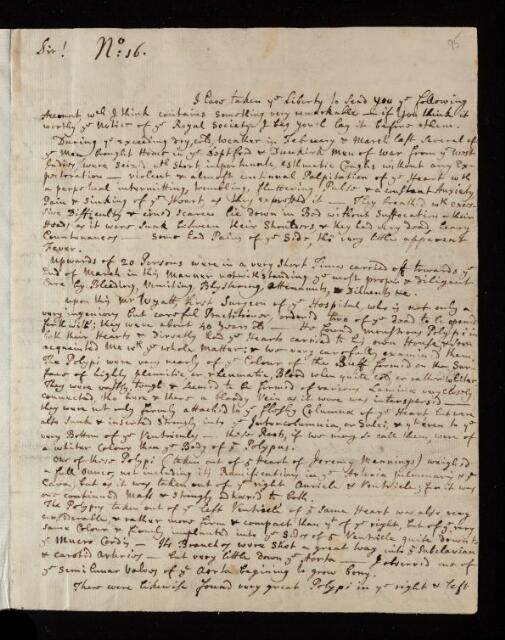 Sir! No: 16.
I have taken ye Liberty to send you ye following
Account, wch I think contains something very remarkable — if you think it
worthy ye Notice of ye Royal Society I beg you'l lay it before them.
During ye exceeding dry, cold, weather in February & March last several of
ye Men brought Hither in ye Deptford & Dunkirk Men of war from ye West
Indies, were seized wth short importunate, asthmatic Coughs without any Ex-
pectoration — violent & almost continual Palpitation of ye Heart, wth
a perpetual intermitting, trembling, fluttering Pulse & a constant Anxiety
Pain & sinking of ye Heart as they expressed it — They breathed wth exces-
sive Difficulty & coud scarce lie down in Bed without Suffocation — their
Heads, as it were sunk between their Shoulders, & they had very dead, heavy
Countenances — some had Pains of ye Side, tho very little apparent
Fever.
Upwards of 20 Persons were in a very short Time carried off towards ye
End of March in this Manner notwithstanding ye most proper & diligent
Care by Bleeding, Vomiting, Blystering, Attenuants, & Diluents &c.
Upon this Mr Wyatt, first Surgeon of ye Hospital, who is not only a
very ingenious but careful Practitioner, ordered two of ye Dead to be opened
forthwith; they were about 40 years old — He found monstrous Polypi in
both their Hearts & directly had ye Hearts carried to his own House & soon
acquainted me wth ye whole Matter; & we very carefully examined them.
The Polypi were very nearly of ye Colour of the Buff formed on the Sur-
face of highly pleuritic or rheumatic, Blood when quite cold or rather whiter
They were vastly tough & seemed to be formed of various Laminæ very closely
connected, tho here & there a bloody Vein as it were was interspersed —
they were not only firmly attached to ye fleshy Columnæ of ye Heart but were
also sunk & inserted strongly into ye Intercolumnia, or Sulci, & yt even to ye
very Bottom of ye Ventricle — these Roots, if we may so call them, were of
a whiter Colour than ye Body of ye Polypus.
One of these Polypi (taken out of ye Heart of Jeremy Mannings) weighed
a full Ounce, not including its Ramifications in ye Arteria pulmonary & ye
Cava, but as it was taken out of ye right Auricle & Ventricle; for it was
one continued Mass & strongly adhered to both.
The Polypus taken out of ye left Ventricle of ye same Heart was also very
considerable & rather more firm & compact than yt of ye right, but of ye very
same Colour & firmly planted into ye Sides of ye Ventricle quite down to
ye Mucro Cordis — Its Branches were shot a great way into ye Subclavian
& carotid Arteries — but very little down ye Aorta — I observed one of
ye semilunar Valves of ye Aorta begining to grow bony.
There were likewise found very great Polypi in ye right & left